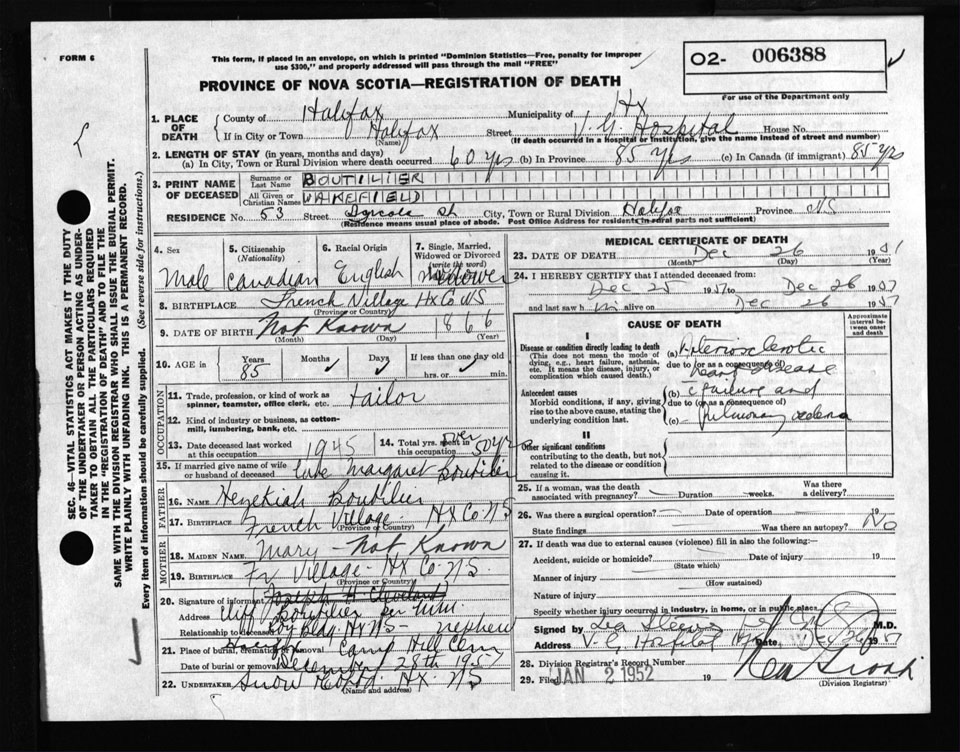 FORM 6
This form, if placed in an envelope, on which is printed "Dominion Statistics—Free, penalty for improper
use $300," and properly addressed will pass through the mail "FREE"
O2- 006388
For use of the Department only
PROVINCE OF NOVA SCOTIA—REGISTRATION OF DEATH
SEC. 46—VITAL STATISTICS ACT MAKES IT THE DUTY
OF THE UNDERTAKER OR PERSON ACTING AS UNDER-
TAKER TO OBTAIN ALL THE PARTICULARS REQUIRED
IN THE "REGISTRATION OF DEATH" AND TO FILE THE
SAME WITH THE DIVISION REGISTRAR WHO SHALL ISSUE THE BURIAL PERMIT.
WRITE PLAINLY WITH UNFADING INK. THIS IS A PERMANENT RECORD.
Every item of information should be carefully supplied. (See reverse side for instructions.)
1. PLACE OF DEATH
County of Halifax Municipality of Hx
If in City or Town Halifax Street V. G. Hospital House No.
(Name) (If death occurred in a Hospital or Institution, give the name instead of street and number)
2. LENGTH OF STAY (in years, months and days)
(a) In City, Town or Rural Division where death occurred 60 yrs (b) In Province 85 yrs (c) In Canada (if immigrant) 85 yrs
3. PRINT NAME OF DECEASED
Surname or Last Name BOUTILIER
All Given or Christian Names WAKEFIELD
RESIDENCE No. 53 Street Agricola St City, Town or Rural Division Halifax Province N.S
(Residence means usual place of abode. Post Office Address for residents in rural parts not sufficient)
4. Sex Male
5. Citizenship (Nationality) Canadian
6. Racial Origin English
7. Single, Married, Widowed or Divorced (write the word) Widower
8. BIRTHPLACE French Village Hx Co NS
(Province or Country)
9. DATE OF BIRTH Not Known 1866
(Month) (Day) (Year)
10. AGE in Years 85 Months Days If less than one day old
hrs. or min.
OCCUPATION
11. Trade, profession, or kind of work as spinner, teamster, office clerk, etc. tailor
12. Kind of industry or business, as cotton-mill, lumbering, bank, etc.
13. Date deceased last worked at this occupation 1945
14. Total yrs. spent in this occupation over 50 yrs
15. If married give name of wife or husband of deceased late Margaret Boutilier
FATHER
16. NAME Hezekiah Boutilier
17. BIRTHPLACE French Village - Hx Co NS
(Province or Country)
MOTHER
18. MAIDEN NAME Mary - Not Known
19. BIRTHPLACE Fr Village - Hx Co. N.S.
(Province or Country)
20. Signature of informant Joseph H Cleveland
Address Boutilier per
Relationship to deceased Hx NS - nephew
21. Place of burial, cremation or removal Camp Hill Cem
Date of burial or removal December 28th 1951
22. UNDERTAKER Snow Hx - NS
(Name and address)
MEDICAL CERTIFICATE OF DEATH
23. DATE OF DEATH Dec 26 1951
(Month) (Day)
24. I HEREBY CERTIFY that I attended deceased from:
Dec 25 1951 to Dec 26 1951
and last saw h im alive on Dec 26 1951
CAUSE OF DEATH
Approximate interval between onset and death
I
Disease or condition directly leading to death
(This does not mean the mode of dying, e.g., heart failure, asthenia, etc. It means the disease, injury, or complication which caused death.)
(a) Arteriosclerotic
due to (or as a consequence of)
heart disease
Antecedent causes
Morbid conditions, if any, giving rise to the above cause, stating the underlying condition last.
(b) c failure and
due to (or as a consequence of)
(c) pulmonary oedema
II
Other significant conditions
contributing to the death, but not related to the disease or condition causing it.
25. If a woman, was the death associated with pregnancy? Duration weeks. Was there a delivery?
26. Was there a surgical operation? Date of operation 19
State findings Was there an autopsy? No
27. If death was due to external causes (violence) fill in also the following:—
Accident, suicide or homicide? Date of injury 19
(State which)
Manner of injury
(How sustained)
Nature of injury
Specify whether injury occurred in industry, in home, or in public place.
Signed by M.D.
Address V. G. Hospital Date Dec 26 1951
28. Division Registrar's Record Number
29. Filed JAN 2 1952 19
(Division Registrar)